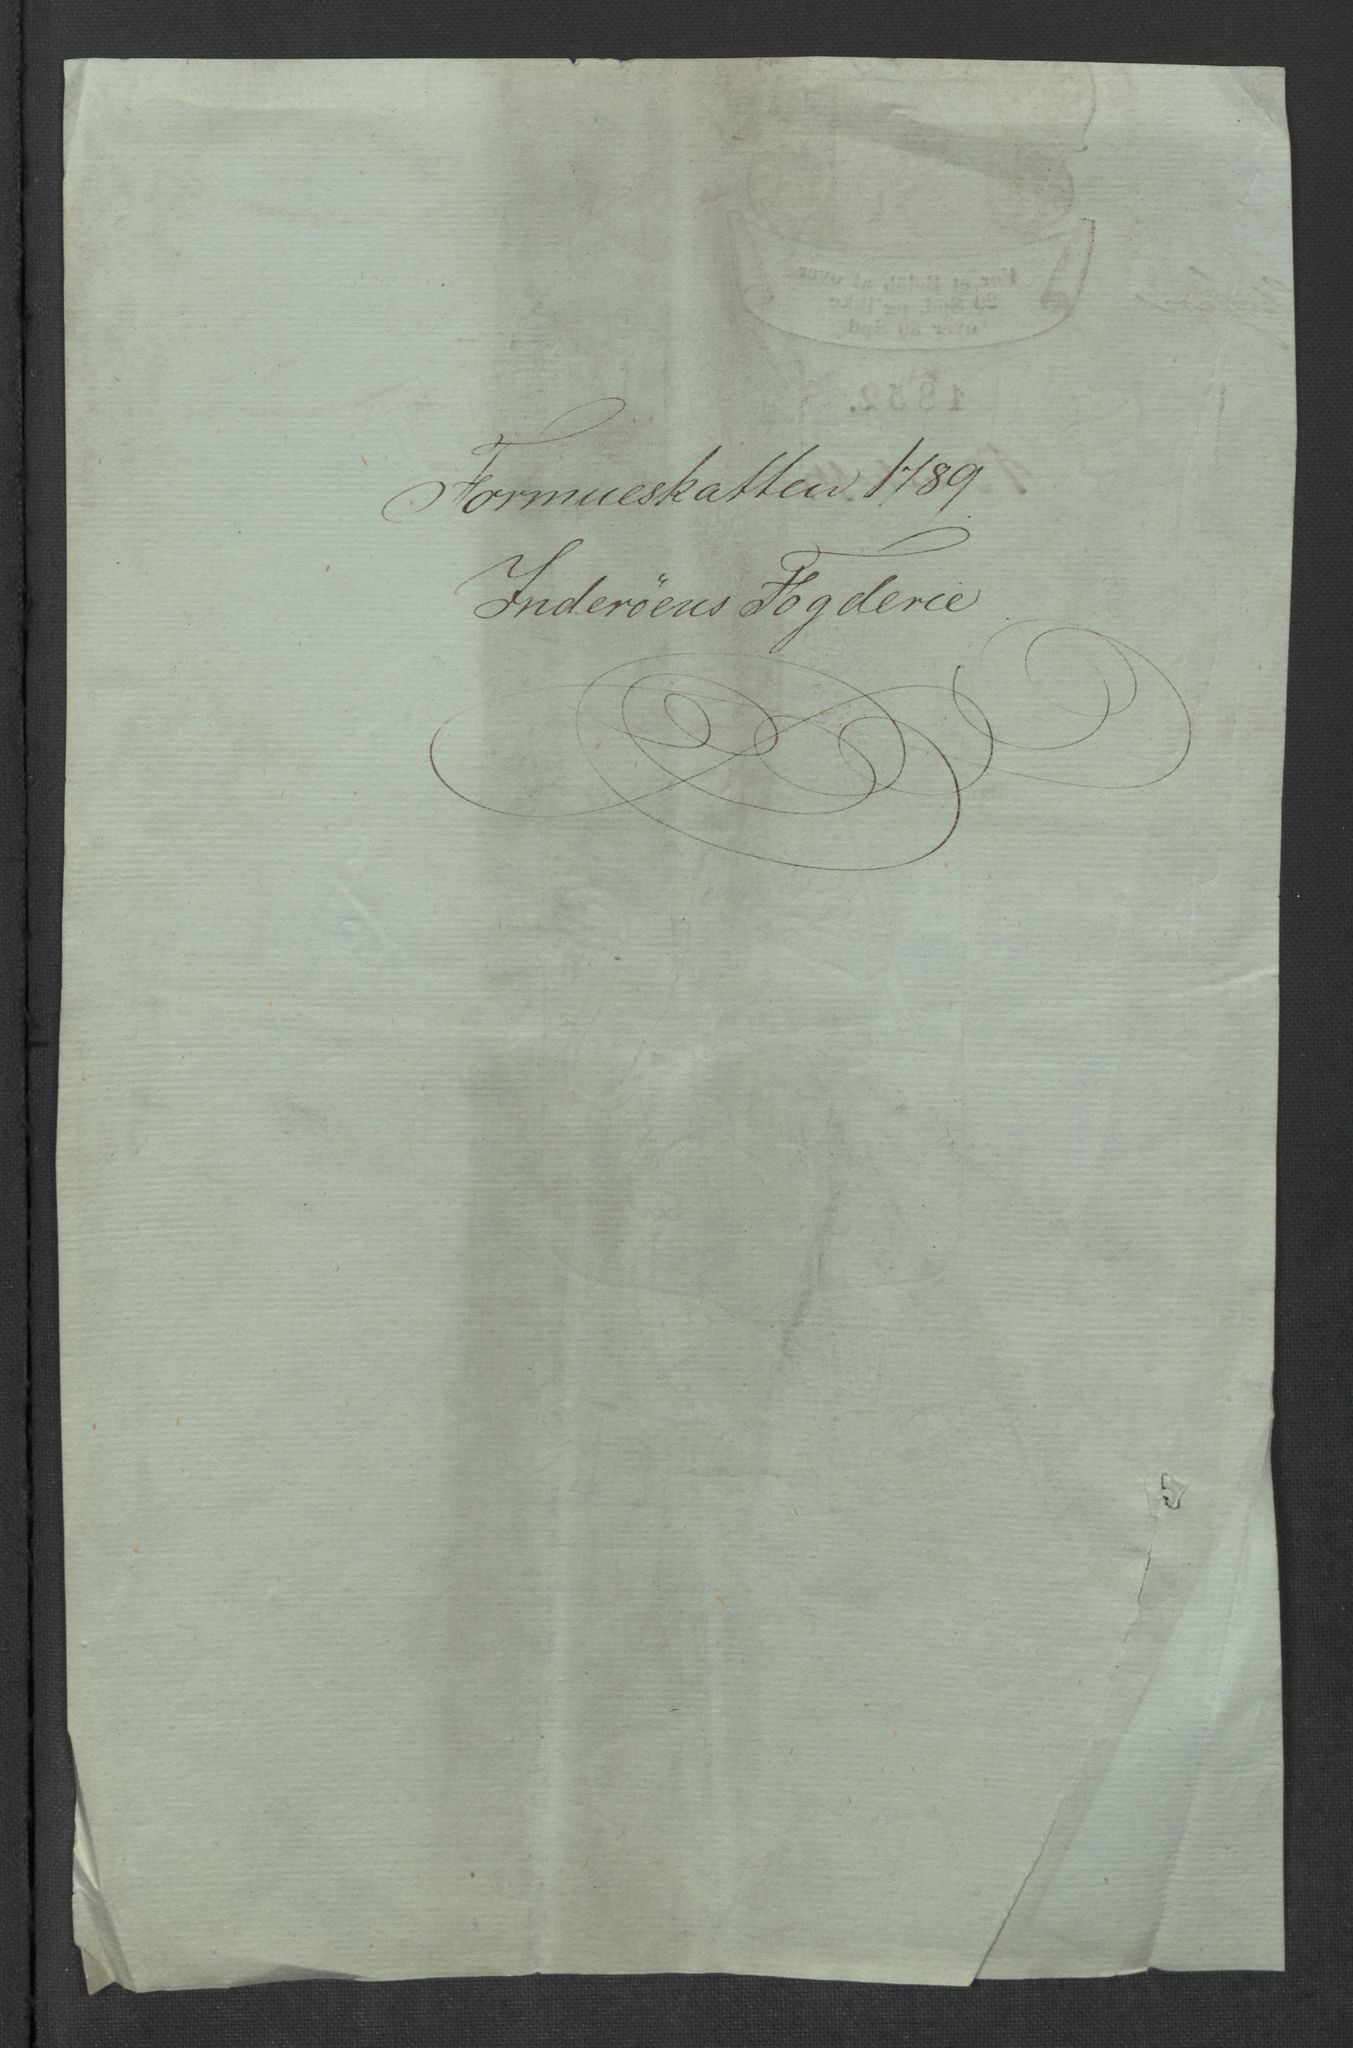 For et Beløb af over
20 Spd. og ikke
over 30 Spd.
1852.
Formueskatten 1789
Inderöens Fogderie